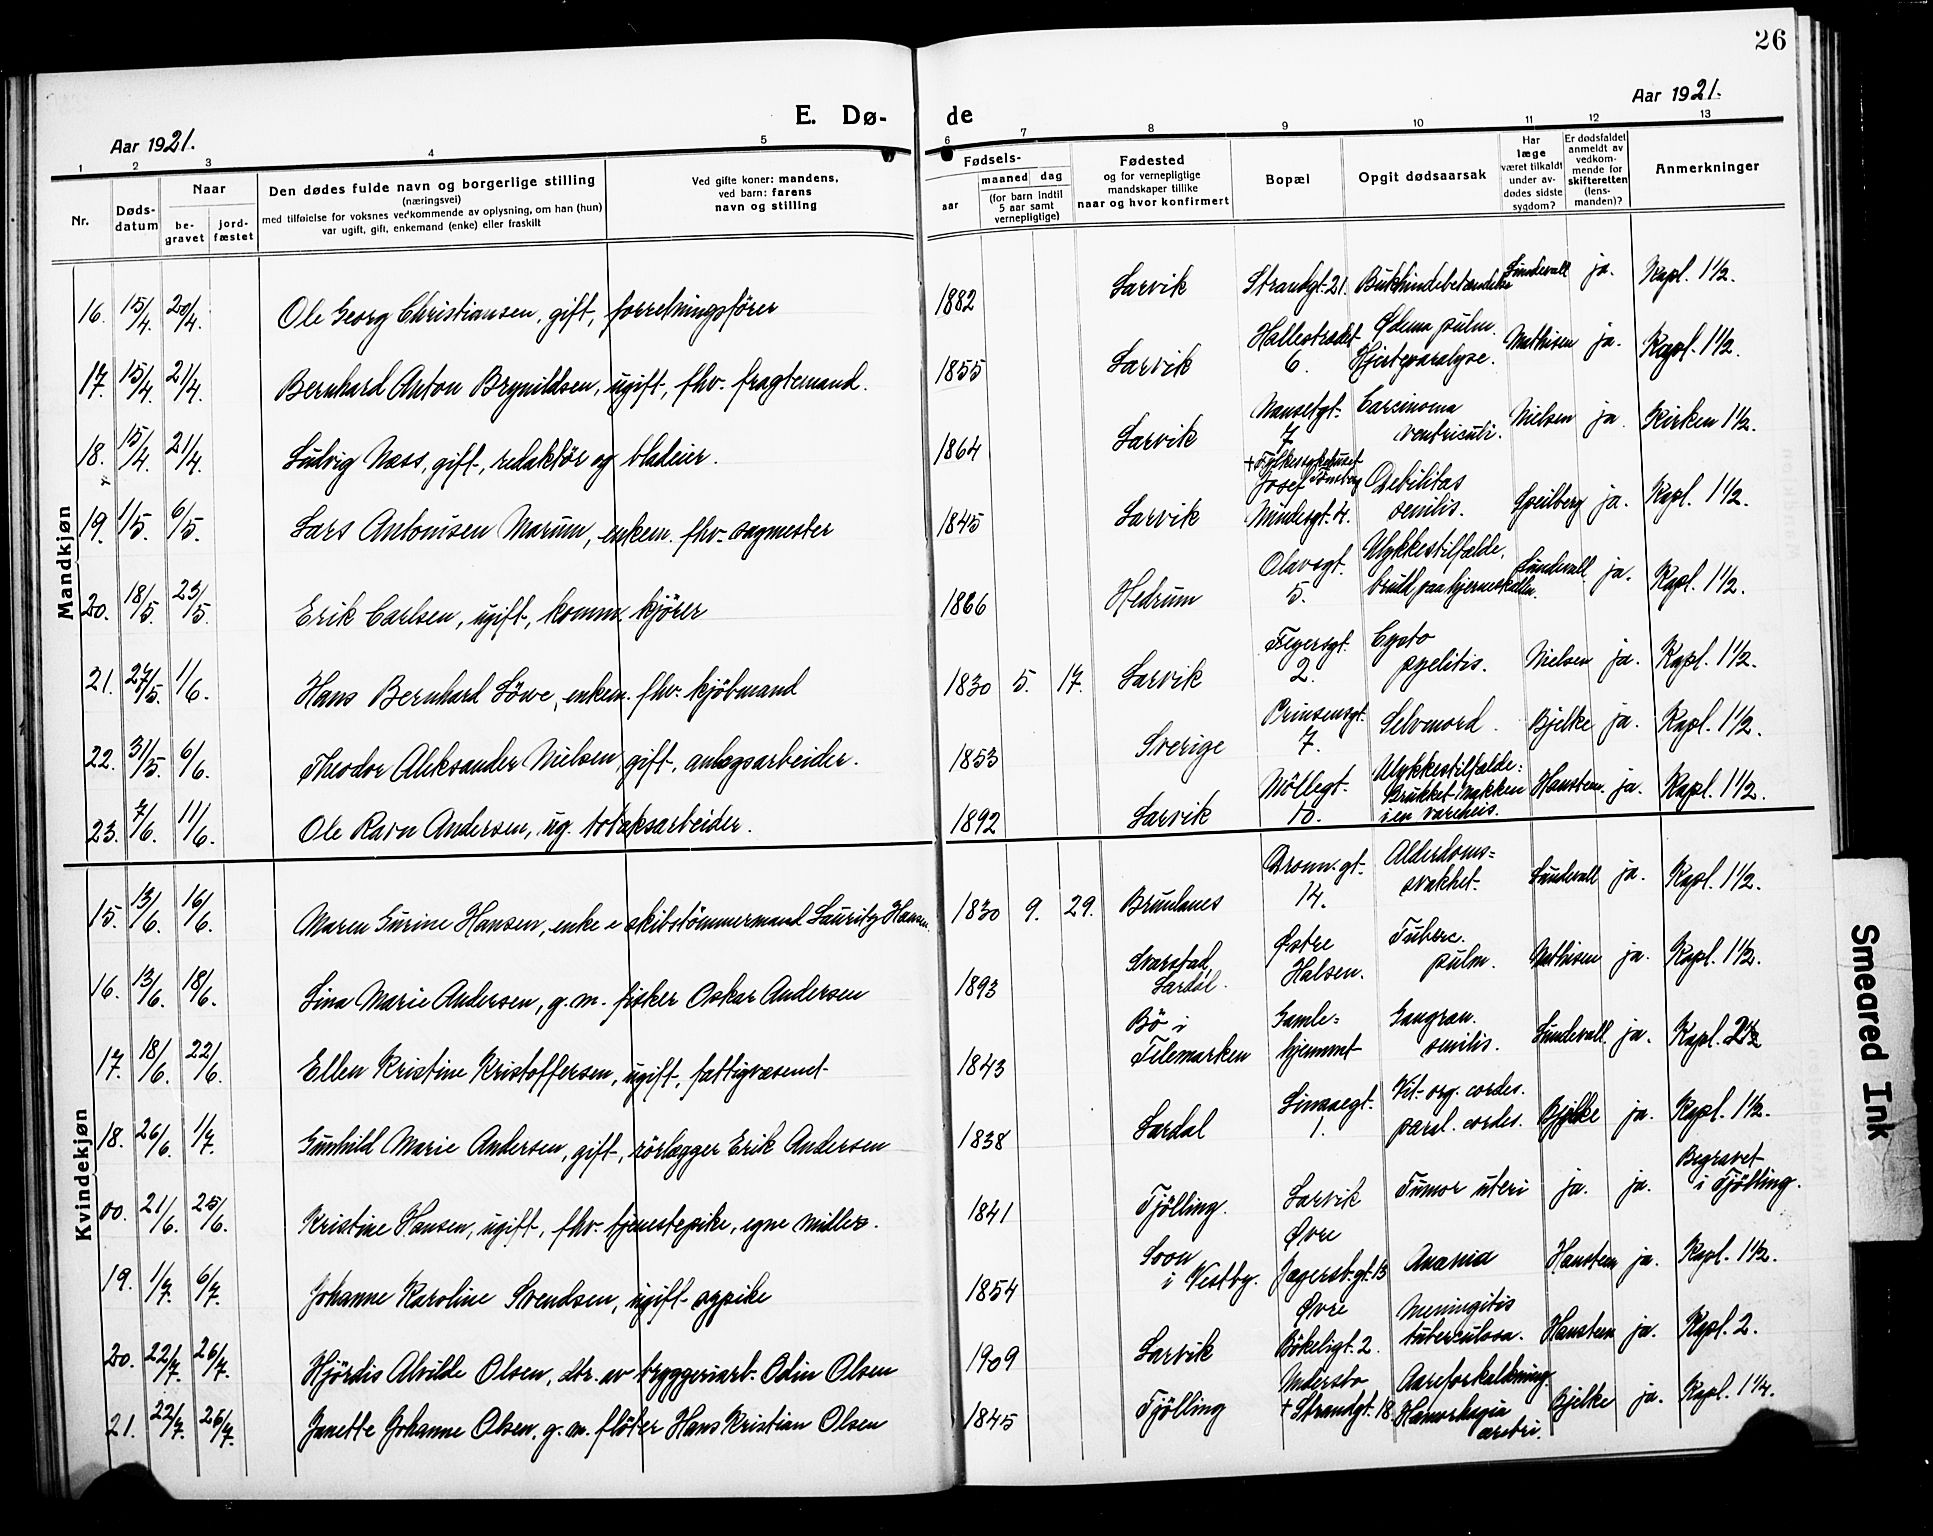 26
E. Dø- de
Aar 1921. Aar 1921.
1 2 3 4 5 6 7 8 9 10 11 12 13
Nr.
Døds-
datum
Naar
be-
gravet
jord-
fæstet
Den dødes fulde navn og borgerlige stilling
(næringsvei)
med tilføielse for voksnes vedkommende av oplysning, om han (hun)
var ugift, gift, enkemand (enke) eller fraskilt
Ved gifte koner: mandens,
ved barn: farens
navn og stilling
Fødsels-
aar
maaned dag
(for barn indtil
5 aar samt
vernepligtige)
Fødested
og for vernepligtige
mandskaper tillike
naar og hvor konfirmert
Bopæl
Opgit dødsaarsak
Har
læge
været tilkaldt
under av-
dødes sidste
sygdom?
Er dødsfaldet
anmeldt av
vedkom-
mende for
skifteretten
(lens-
manden)?
Anmerkninger
Mandkjøn
16. 15/4. 20/4. Ole Georg Christiansen, gift, forretningsfører 1882 Larvik Strandgt. 21. Bukhindebetændelse Sundevall ja. Kapl. 1 1/2.
17. 15/4. 21/4. Bernhard Anton Brynildsen, ugift, fhv. fragtemand. 1855 Larvik Hallestrædet 6. Ødema pulm. Hjerteparalyse. Mathisen ja. Kapl. 1 1/2.
18. 15/4. 21/4. Ludvig Næss, gift, redaktör og bladeier. 1864 Larvik Nansetgt. 7 Carcinoma ventriculi. Nielsen ja Kirken 1 1/2.
19. 1/5. 6/5. Lars Antonisen Marum, enkem. fhv. sagmester 1845 Larvik + Fylkessykehuset Tønsberg Josef Mündesgt. 4. Debilitas senilis. Speilberg ja. Kapl. 1 1/2.
20. 18/5. 23/5. Erik Carlsen, ugift, komm. kjører 1866 Hedrum Olavsgt. 5. Ulykkestilfælde, brudd paa hjerneskallen. Sundevall ja. Kapl. 1 1/2.
21. 27/5. 1/6. Hans Bernhard Löwe, enkem. fhv. kjöbmand 1830 5. 17. Larvik Feyersgt. 2. Cysto pyelitis. Nielsen ja. Kapl. 1 1/2.
22. 31/5. 6/6. Theodor Aleksander Nielsen, gift, anlægsarbeider. 1853 Sverige Prinsensgt. 7. Selvmord. Bjelke ja. Kapl. 1 1/2.
23. 7/6. 11/6. Ole Ravn Andersen, ug. tobaksarbeider. 1892 Larvik Möllegt. 10. Ulykkestilfælde: Brukket Nakken i en vareheis. Hanstem ja. Kapl. 1 1/2.
Kvindekjøn
15. 13/6. 16/6. Maren Gurine Hansen, enke e skibstömmermand Lauritz Hansen. 1830 9. 29. Brunlanes Dronn. gt. 14. Alderdoms= svakhet. Sundevall ja. Kapl. 1 1/2.
16. 13/6. 18/6. Lina Marie Andersen, g.m. fisker Oskar Andersen 1893 Svarstad, Lardal. Østre Halsen. Tuberc. pulm. Mathisen ja. Kapl. 1 1/2.
17. 18/6. 22/6. Ellen Kristine Kristoffersen, ugift, fattigvæsenet 1843 Bö i Telemarken Gamle= hjemmet Gangræn. senilis. Sundevall. ja. Kapl.
18. 26/6. 1/7. Gunhild Marie Andersen, gift, rörlægger Erik Andersen 1838 Lardal Linaaegt. 1. Vit. org. cordes. paral. cordes. Bjelke ja. Kapl. 1 1/2.
00. 21/6. 25/6. Kristine Hansen, ugift, fhv. tjenestepike, egne midler. 1841 Tjölling. Larvik Tumor uteri ja. ja. Begravet i Tjölling.
19. 1/7. 6/7. Johanne Karoline Svendsen, ugift sypike 1854 Soon i Vestby. Øvre Jagersb. gt. 13 Anæmia Hanstem ja. Kapl. 1 1/2.
20. 22/7. 26/7. Hjördis Alvilde Olsen, dtr. av bryggeriarb. Odin Olsen 1909 Larvik Øvre Bökeligt. 2. Meningitis tuberculosa. Hanstem ja. Kapl. 2.
21. 22/7. 26/7. Janette Johanne Olsen, g.m. fløter Hans Kristian Olsen 1845 Tjölling Undersbo + Strandgt. 18. Aareforkalkning. Bjelke ja. Kapl. 1 1/4.
Smeared Ink